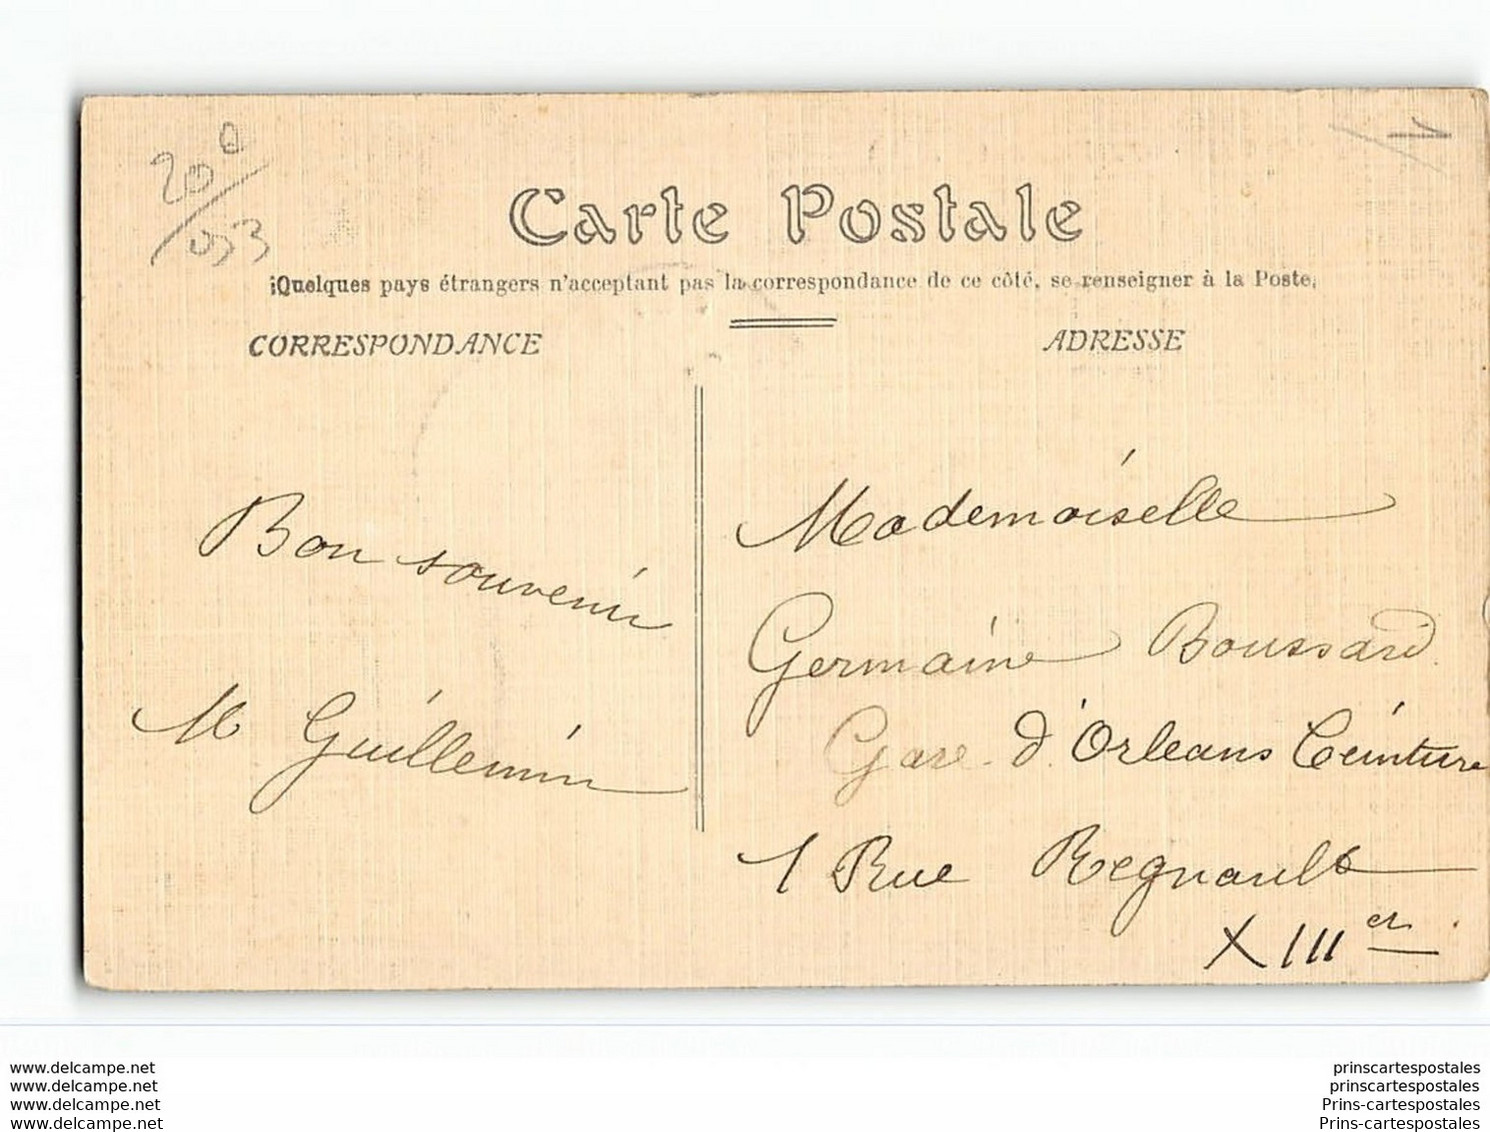 200
953
Carte Postale
Quelques pays étrangers n'acceptant pas la correspondance de ce côté, se renseigner à la Poste,
CORRESPONDANCE
ADRESSE
Bon souvenir
M Guillemin
Mademoiselle
Germaine Boussard
Gare d'Orleans Ceinture
1 Rue Regnault
XIII er
www.delcampe.net
www.delcampe.net
www.delcampe.net
www.delcampe.net
prinscartespostales
prinscartespostales
Prins-cartespostales
Prins-cartespostales